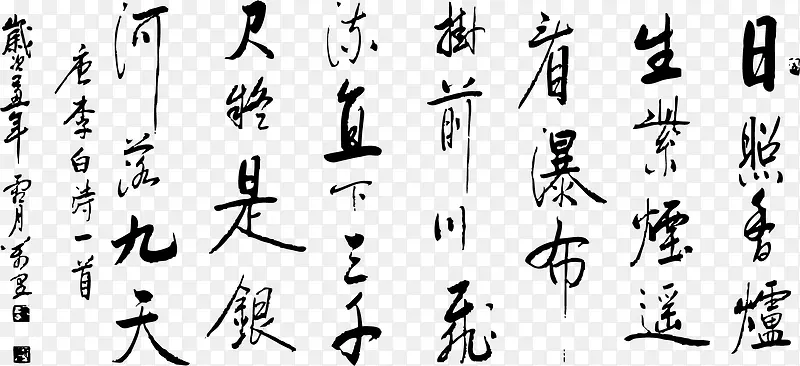 日照香爐
生紫煙遥
看瀑布
掛前川飛
流直下三千
尺疑是銀
河落九天
唐李白詩一首
歲次年月